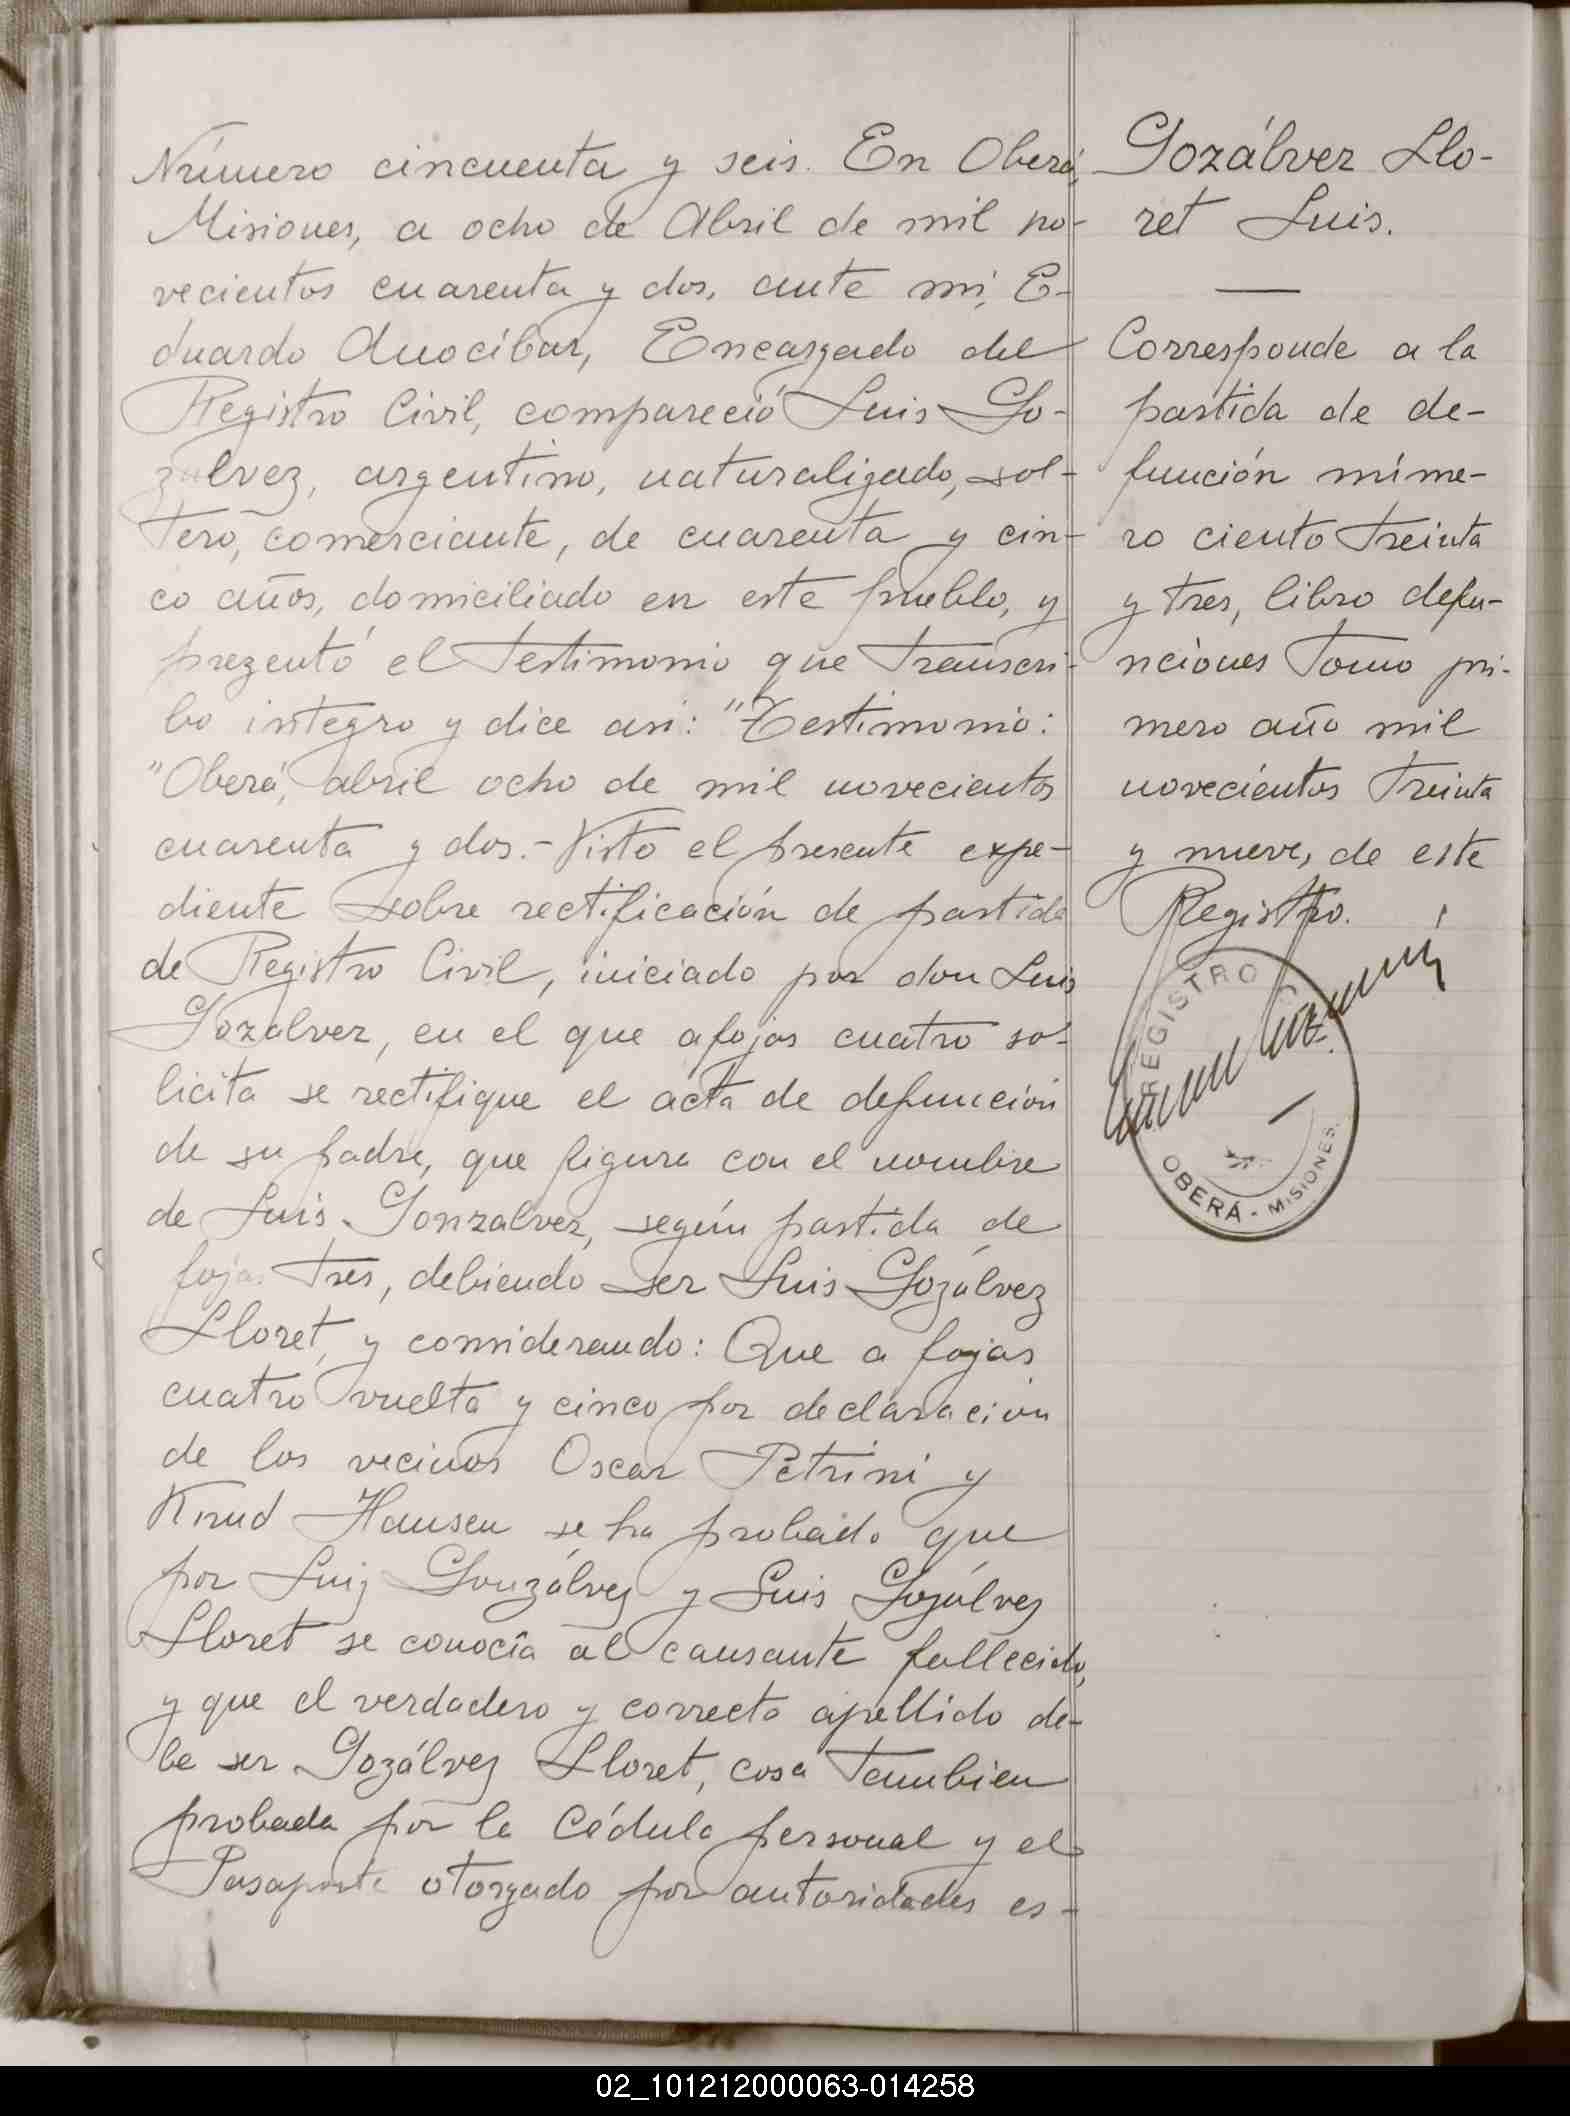 Número cincuenta y seis. En Oberá,
Misiones, a ocho de Abril de mil no-
vecientos cuarenta y dos, ante mi, E-
duardo Anocíbar, Encargado del
Registro Civil, compareció Luis Go-
zalvez, argentino, naturalizado, sol-
tero, comerciante, de cuarenta y cin-
co años, domiciliado en este pueblo, y
prezentó el testimonio que transcri-
bo integro y dice asi: "Testimonio:
"Oberá, abril ocho de mil novecientos
cuarenta y dos.- Visto el presente expe-
diente sobre rectificación de partida
de Registro Civil, iniciado por don Luis
Gozalvez, en el que a fojas cuatro so-
licita se rectifique el acta de defunción
de su padre, que figura con el nombre
de Luis Gonzalvez, según partida de
fojas tres, debiendo ser Luis Gozálvez
Lloret, y considerando: Que a fojas
cuatro vuelta y cinco por declaración
de los vecinos Oscar Petrini y
Knud Hansen se ha probado que
por Luis Gonzálvez y Luis Gozálvez
Lloret se conocía al causante fallecido,
y que el verdadero y correcto apellido de-
be ser Gozálvez Lloret, cosa tambien
probada por la Cédula personal y el
Pasaporte otorgado por autoridades es-
Gozálvez Llo-
ret Luis.
Corresponde a la
partida de de-
función núme-
ro ciento treinta
y tres, libro defu-
nciones Tomo pri-
mero año mil
novecientos treinta
y nueve, de este
Registro.
REGISTRO
OBERÁ - MISIONES.
02_101212000063-014258